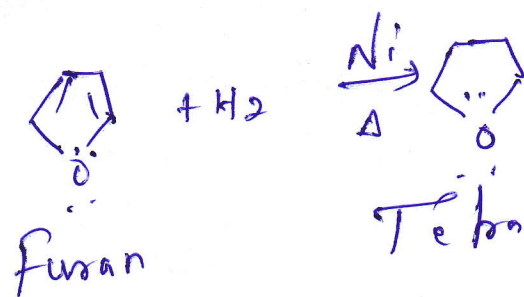 + H2
Ni
Δ
O
O
Furan
Tetra